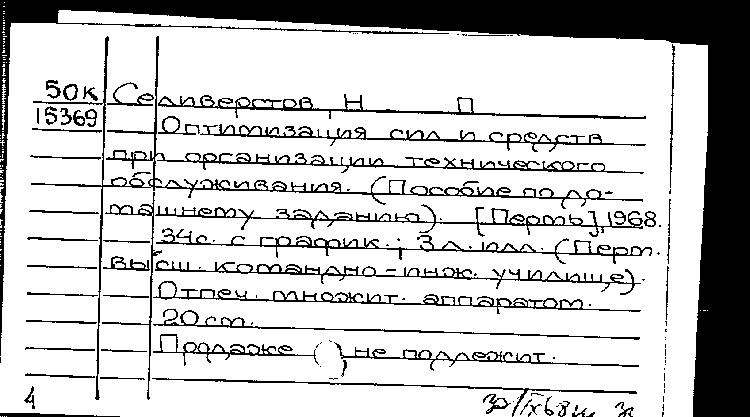 50к Селиверстов, Н П
15369
Оптимизация сил и средств
при организации технического
обслуживания. (Пособие по до-
машнему заданию). [Пермь], 1968.
34с. с график.; 3 л. илл. (Перм.
высш. командно-инж. училище).
Отпеч. множит. аппаратом.
20 ст.
Продаже ( ) не подлежит.
4